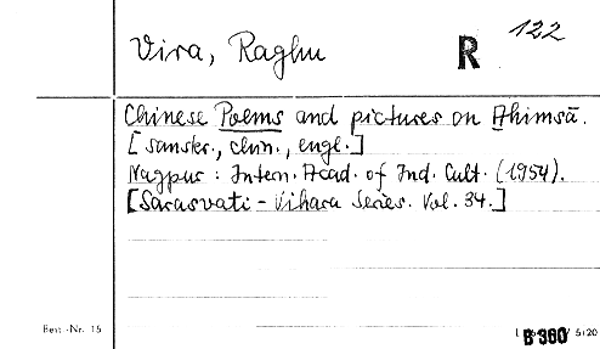 Vira, Raghu
R 122
Chinese Poems and pictures on Ahimsā.
[sanskr., chin., engl.]
Nagpur : Intern. Acad. of Ind. Cult. (1954).
[Sarasvati - Vihara Series. Vol. 34.]
Best.-Nr. 15
B 360 5120